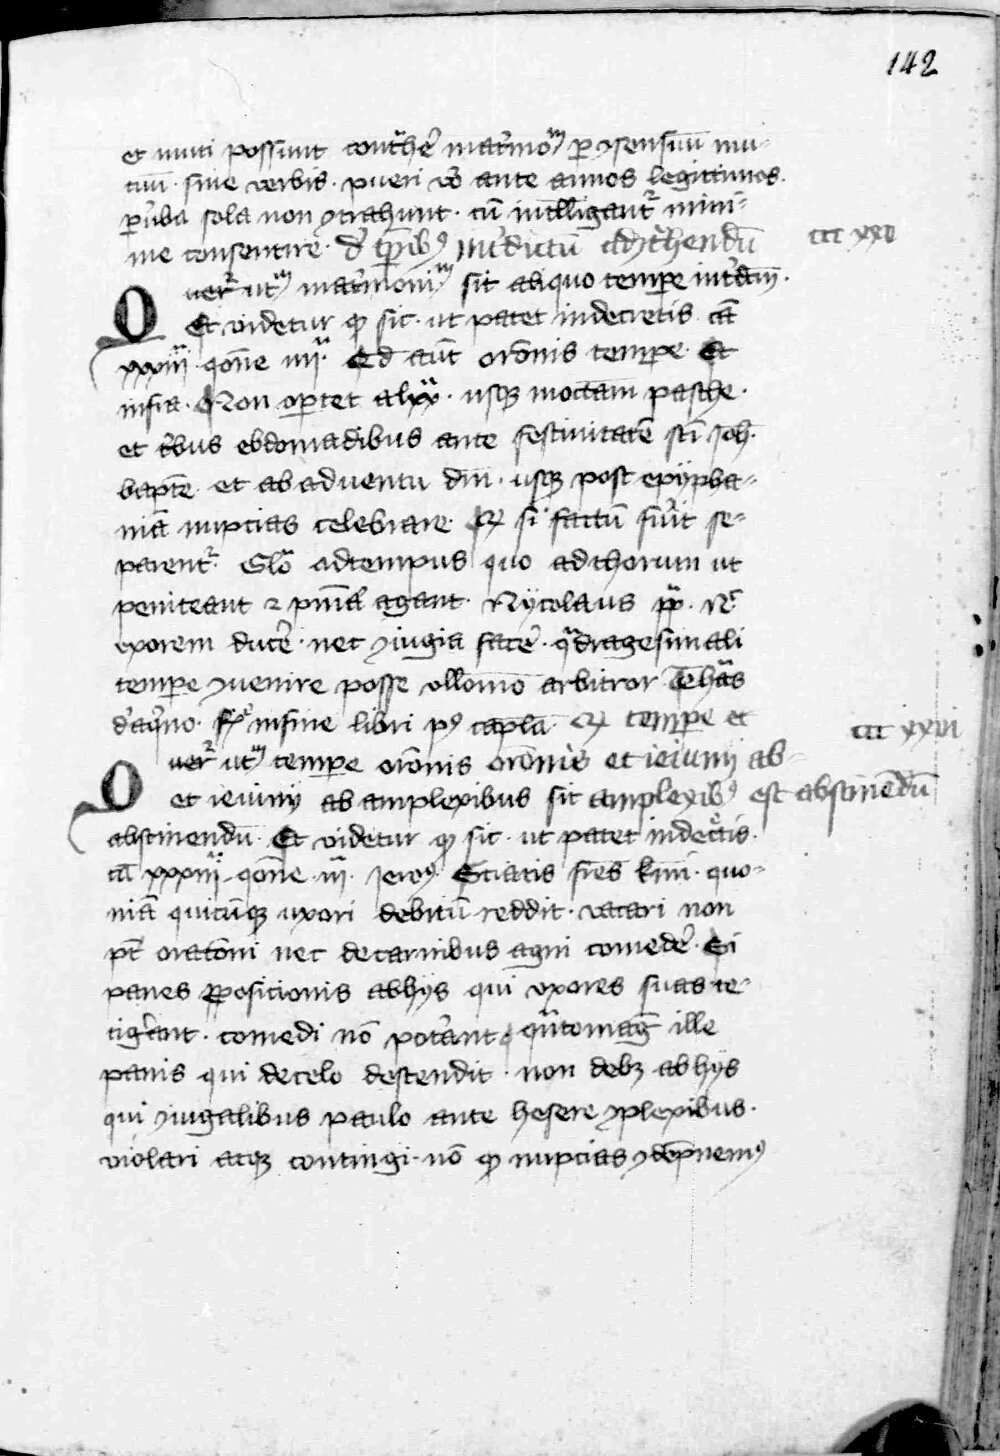 142
et muti possunt contrahere matrimonium per consensum mu-
tuum · sine verbis · pueri vero ante annos legittimos ·
per verba sola non contrahunt · cum intelligantur mini-
me consentire · de temporibus interdictum ad contrahendum ccc xxv
Queritur utrum matrimonium sit aliquo tempore interdictum ·
Et videtur quod sic · ut patet in decretis causa
xxxiii questione iiii · Quod autem orationis tempore · Et
infra · Non oportet a lxx · usque in octavam pasche ·
et tribus ebdomadibus ante festivitatem sancti Joh.
baptiste · et ab adventu domini · usque post epypha-
niam nuptias celebrare · Quod si factum fuerit se-
parentur · Glosa ad tempus quo ad thorum ut
peniteant et penitentiam agant · Nycolaus papa · Nec
uxorem ducere · nec coniugia facere · quadragesimali
tempore convenire posse ullomodo arbitror Thomas
de aquino · in fine libri
Queritur utrum tempore orationis orationis et ieiunii ab- ccc xxvi
et ieiunii ab amplexibus sit amplexibus est abstinendum
abstinendum · Et videtur quod sic · ut patet in decretis ·
causa xxxiii · questione iii · Jeronimus · Sciatis fratres karissimi · quo-
niam quicumque uxori debitum reddit · vacari non
potest orationi nec de carnibus agni comedere · Si
panes propositionis ab hiis qui uxores suas te-
tigerant · comedi non poterant · quantomagis ille
panis qui de celo descendit · non debet ab hiis
qui coniugalibus paulo ante hesere complexibus ·
violari atque contingi · non quod nuptias condempnemus